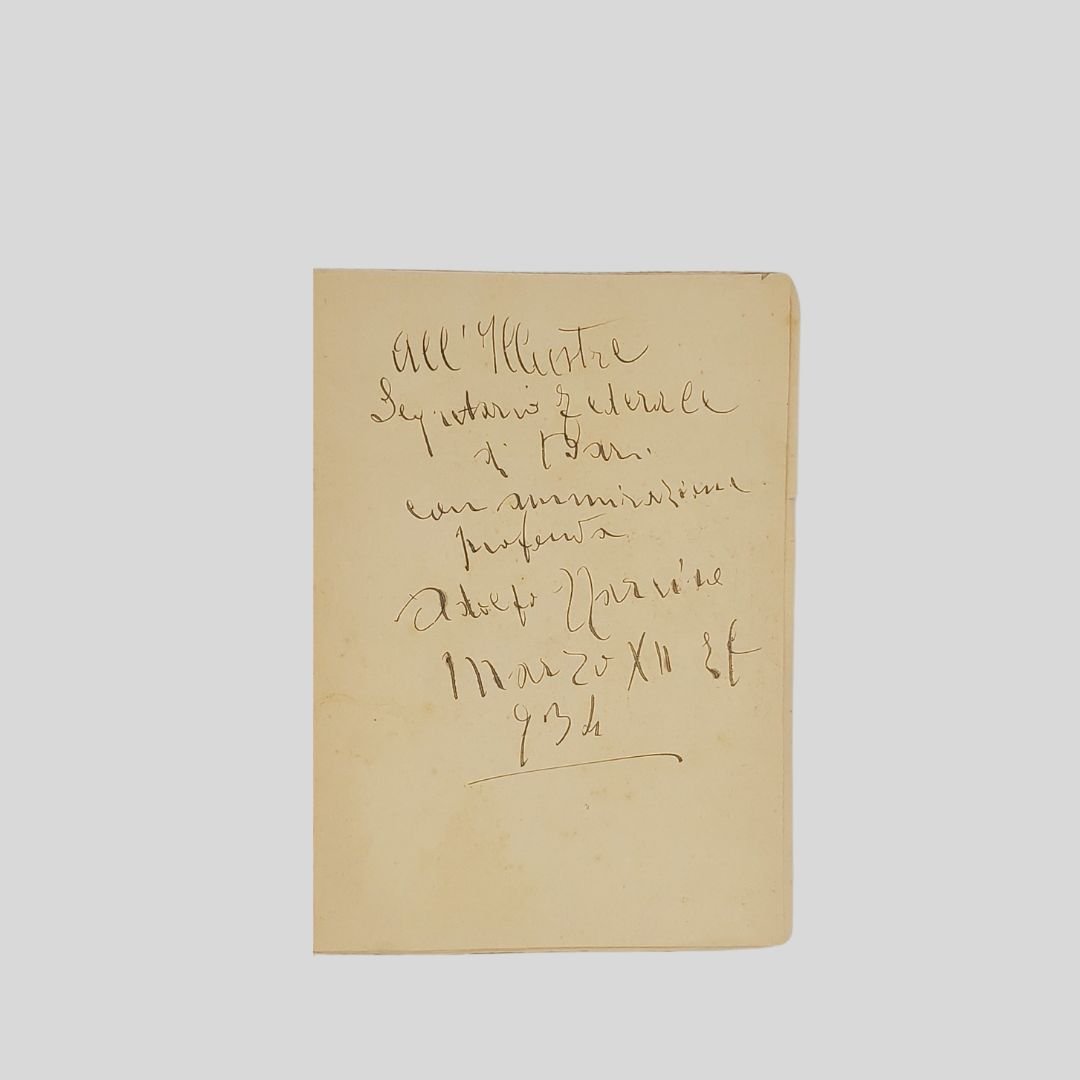 All'Illustre
Segretario Federale
di Bari.
con ammirazione
profonda
Adolfo
Marzo XII EF
934